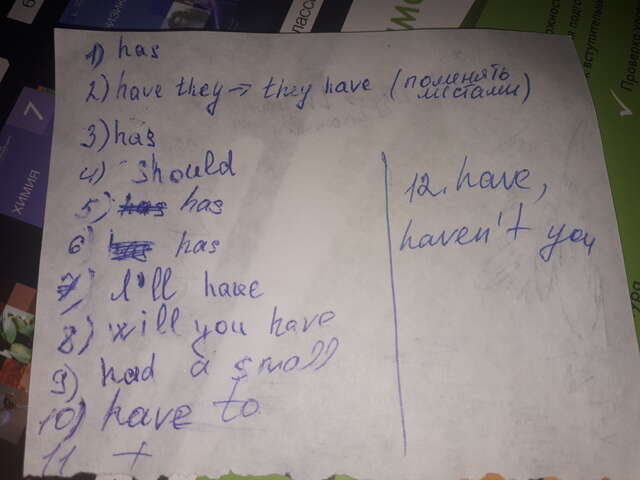 1) has
2) have they → they have (поменять
местами)
3) has
4) should
5) has has
6) has
7) I'll have
8) will you have
9) had a small
10) have to
11 +
12. have,
haven't you
7
ХИМИЯ